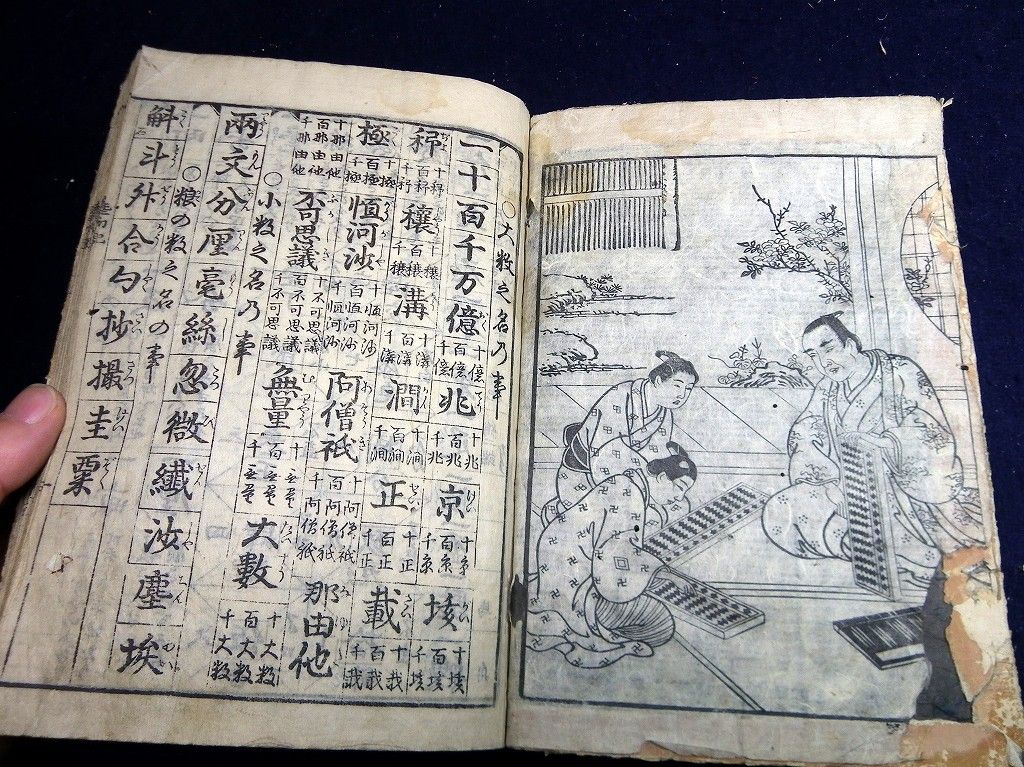 〇大数之名乃事
一十百千万億十億百億千億兆十兆百兆千兆京十京百京千京垓十垓百垓千垓
秭十秭百秭千秭穰十穰百穰千穰溝十溝百溝千溝澗十澗百澗千澗正十正百正千正載十載百載千載
極十極百極千極恒河沙十恒河沙百恒河沙千恒河沙阿僧祇十阿僧祇百阿僧祇千阿僧祇那由他
十那由他百那由他千那由他不可思議十不可思議百不可思議千不可思議無量十无量百无量千无量大數十大数百大数千大数
〇小数之名乃事
兩文分厘毫絲忽微纖沙塵埃
〇粮の数之名の事
斛石斗升合勺抄撮圭粟